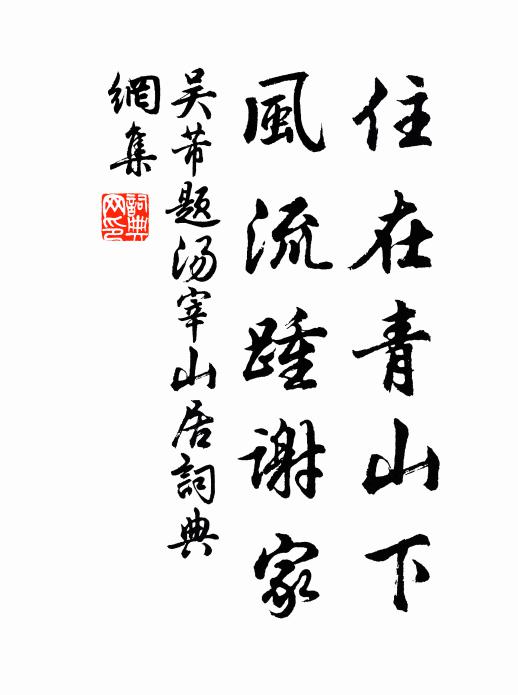 住在青山下
風流踵謝家
吴芾题汤宰山居詞典
網集
詞典
网印